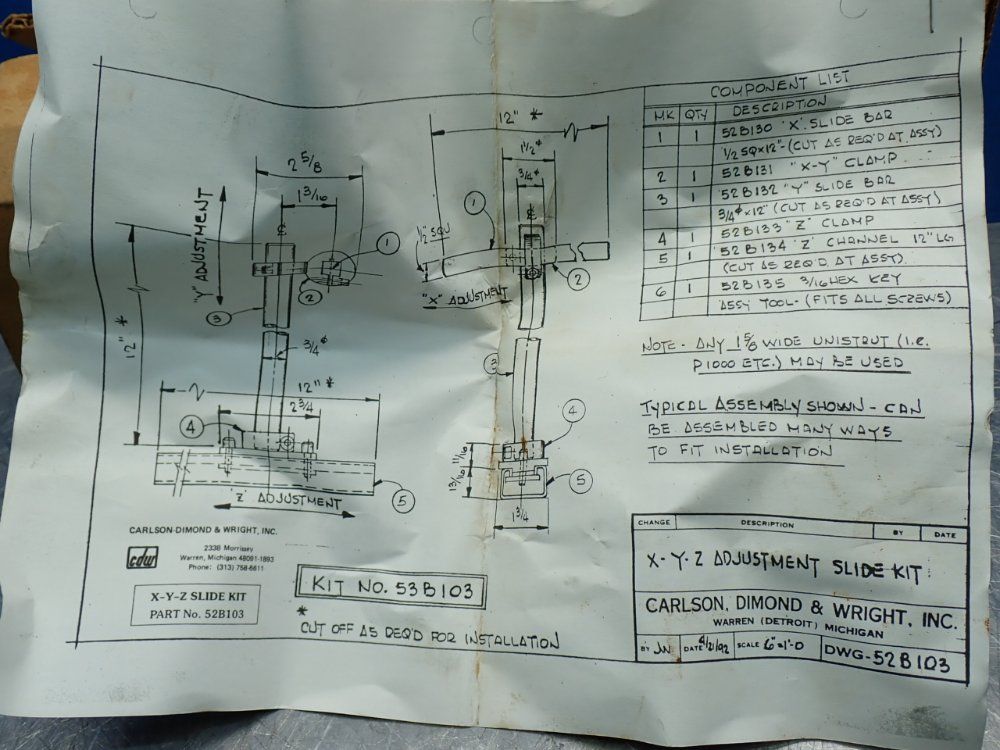 COMPONENT LIST
MK QTY DESCRIPTION
1 1 52B130 "X" SLIDE BAR
1/2 SQ×12"-(CUT AS REQ'D AT ASSY)
2 1 52B131 "X-Y" CLAMP
3 1 52B132 "Y" SLIDE BAR
3/4⌀×12" (CUT AS REQ'D AT ASSY)
4 1 52B133 "Z" CLAMP
5 1 52B134 "Z" CHANNEL 12" LG
(CUT AS REQ'D AT ASSY)
6 1 52B135 3/16 HEX KEY
ASSY TOOL-(FITS ALL SCREWS)
NOTE - ANY 1 5/8 WIDE UNISTRUT (I.E.
P1000 ETC.) MAY BE USED
TYPICAL ASSEMBLY SHOWN - CAN
BE ASSEMBLED MANY WAYS
TO FIT INSTALLATION
2 5/8
1 3/16
"Y" ADJUSTMENT
12" *
1
2
3
3/4⌀
12" *
2 3/4
4
5
"Z" ADJUSTMENT
12" *
1 1/2⌀
3/4⌀
1
1/2 SQU
2
"X" ADJUSTMENT
3
4
11/16
13/16
5
1 3/4
CARLSON-DIMOND & WRIGHT, INC.
cdw
2338 Morrissey
Warren, Michigan 48091-1893
Phone: (313) 758-6611
X-Y-Z SLIDE KIT
PART No. 52B103
KIT NO. 53B103
*
CUT OFF AS REQ'D FOR INSTALLATION
CHANGE DESCRIPTION BY DATE
X-Y-Z ADJUSTMENT SLIDE KIT
CARLSON, DIMOND & WRIGHT, INC.
WARREN (DETROIT) MICHIGAN
BY JW DATE 4/21/92 SCALE 6"=1'-0 DWG-52B103